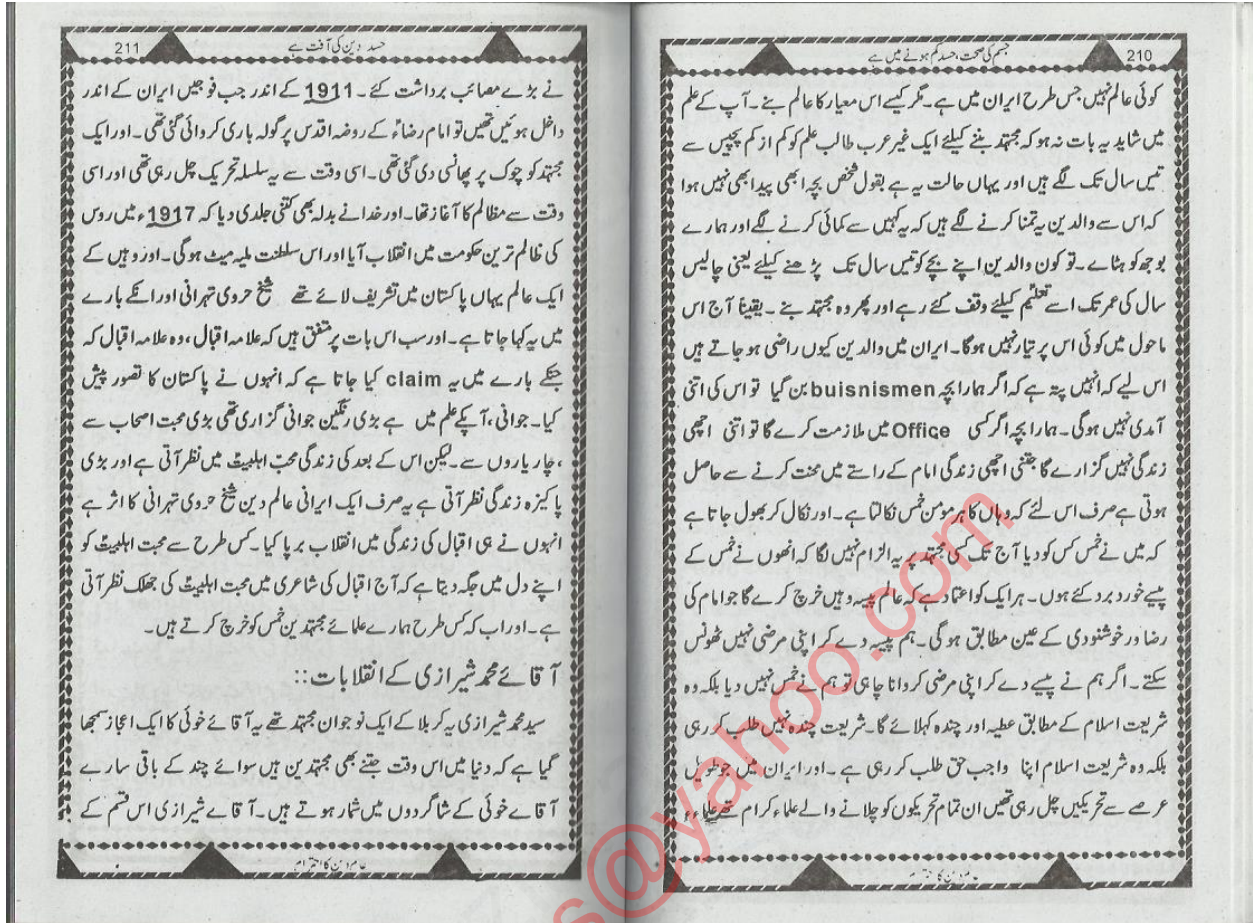 210
جسم کی صحت، حسد کم ہونے میں ہے
کوئی عالم نہیں جس طرح ایران میں ہے۔ مگر کیسے اس معیار کا عالم بنے۔ آپ کے علم
میں شاید یہ بات نہ ہو کہ مجتہد بننے کیلئے ایک غیر عرب طالب علم کو کم از کم پچیس سے
تیس سال تک لگے ہیں اور یہاں حالت یہ ہے بقول شخص بچہ ابھی پیدا بھی نہیں ہوا
کہ اس سے والدین یہ تمنا کرنے لگے ہیں کہ یہ کہیں سے کمائی کرنے لگے اور ہمارے
بوجھ کو ہٹاے۔ تو کون والدین اپنے بچے کو تیس سال تک پڑھنے کیلئے یعنی چالیس
سال کی عمر تک اسے تعلیم کیلئے وقف کئے رہے اور پھر وہ مجتہد بنے ۔ یقیناً آج اس
ماحول میں کوئی اس پر تیار نہیں ہوگا۔ ایران میں والدین کیوں راضی ہو جاتے ہیں
اس لیے کہ انہیں پتہ ہے کہ اگر ہمارا بچہ buisnismen بن گیا تو اس کی اتنی
آمدی نہیں ہوگی۔ ہمارا بچہ اگر کسی Office میں ملازمت کرے گا تو اتنی اچھی
زندگی نہیں گزارے گا جتنی اچھی زندگی امام کے راستے میں محنت کرنے سے حاصل
ہوتی ہے صرف اس لئے کہ وہاں کا ہر مومن خمس نکالتا ہے۔ اور نکال کر بھول جاتا ہے
کہ میں نے خمس کس کو دیا آج تک کسی مجتہد پر یہ الزام نہیں لگا کہ انھوں نے خمس کے
پیسے خورد برد کئے ہوں۔ ہر ایک کو اعتماد ہے کہ عالم پیسہ وہیں خرچ کرے گا جو امام کی
رضا ور خوشنودی کے عین مطابق ہوگی۔ ہم پیسہ دے کر اپنی مرضی نہیں ٹھونس
سکتے۔ اگر ہم نے پیسے دے کر اپنی مرضی کروانا چاہی تو ہم نے خمس نہیں دیا بلکہ وہ
شریعت اسلام کے مطابق عطیہ اور چندہ کہلائے گا۔ شریعت چندہ نہیں طلب کر رہی
بلکہ وہ شریعت اسلام اپنا واجب حق طلب کر رہی ہے ۔ اور ایران میں جو طویل
عرصے سے تحریکیں چل رہی تھیں ان تمام تحریکوں کو چلانے والے علماء کرام تھے علماء
عالم دین کا احترام
211
حسد دین کی آفت ہے
نے بڑے مصائب برداشت کئے۔ 1911 کے اندر جب فوجیں ایران کے اندر
داخل ہوئیں تھیں تو امام رضاؑ کے روضہ اقدس پر گولہ باری کروائی گئی تھی۔ اور ایک
مجتہد کو چوک پر پھانسی دی گئی تھی۔ اسی وقت سے یہ سلسلہ تحریک چل رہی تھی اور اسی
وقت سے مظالم کا آغاز تھا۔ اور خدا نے بدلہ بھی کتنی جلدی دیا کہ 1917ء میں روس
کی ظالم ترین حکومت میں انقلاب آیا اور اس سلطنت ملیہ میٹ ہوگی۔ اور وہیں کے
ایک عالم یہاں پاکستان میں تشریف لائے تھے شیخ حروی تہرانی اور انکے بارے
میں یہ کہا جاتا ہے۔ اور سب اس بات پر متفق ہیں کہ علامہ اقبال، وہ علامہ اقبال کہ
جنکے بارے میں یہ claim کیا جاتا ہے کہ انہوں نے پاکستان کا تصور پیش
کیا۔ جوانی، آپکے علم میں ہے بڑی رنگین جوانی گزاری تھی بڑی محبت اصحاب سے
، چار یاروں سے۔ لیکن اس کے بعد کی زندگی محب اہلبیتؑ میں نظر آتی ہے اور بڑی
پاکیزہ زندگی نظر آتی ہے یہ صرف ایک ایرانی عالم دین شیخ حروی تہرانی کا اثر ہے
انہوں نے ہی اقبال کی زندگی میں انقلاب برپا کیا۔ کس طرح سے محبت اہلبیتؑ کو
اپنے دل میں جگہ دیتا ہے کہ آج اقبال کی شاعری میں محبت اہلبیتؑ کی جھلک نظر آتی
ہے۔ اور اب کہ کس طرح ہمارے علمائے مجتہدین خمس کو خرچ کرتے ہیں۔
آقائے محمد شیرازی کے انقلابات::
سید محمد شیرازی یہ کربلا کے ایک نوجوان مجتہد تھے یہ آقائے خوئی کا ایک اعجاز سمجھا
گیا ہے کہ دنیا میں اس وقت جتنے بھی مجتہدین ہیں سوائے چند کے باقی سارے
آقائے خوئی کے شاگردوں میں شمار ہوتے ہیں۔ آقاے شیرازی اس قسم کے
عالم دین کا احترام
s@yahoo.com